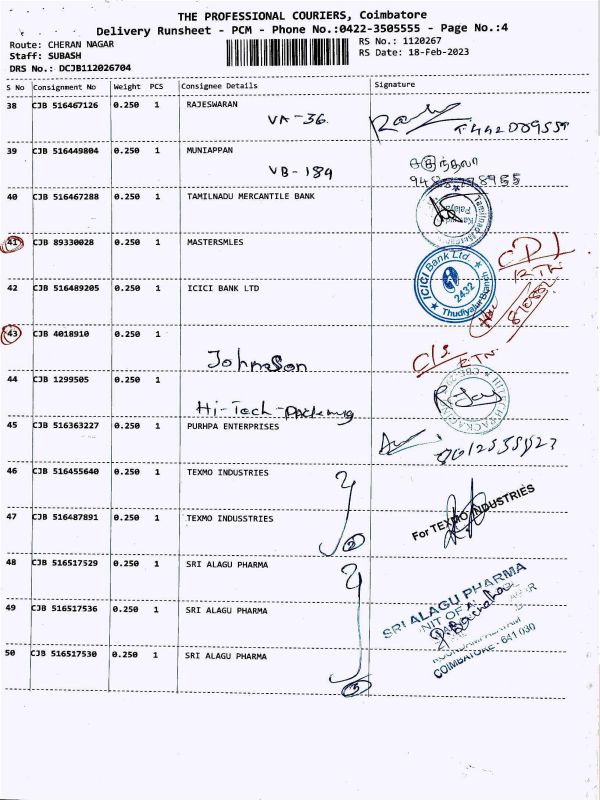 THE PROFESSIONAL COURIERS, Coimbatore
Delivery Runsheet - PCM - Phone No.:0422-3505555 - Page No.:4
Route: CHERAN NAGAR
RS No.: 1120267
Staff: SUBASH
RS Date: 18-Feb-2023
DRS No.: DCJB112026704
S No Consignment No Weight PCS Consignee Details Signature
38 CJB 516467126 0.250 1 RAJESWARAN
VA-36
39 CJB 516449804 0.250 1 MUNIAPPAN
VB-189
40 CJB 516467288 0.250 1 TAMILNADU MERCANTILE BANK
41 CJB 89330028 0.250 1 MASTERSMLES
RTN
42 CJB 516489205 0.250 1 ICICI BANK LTD
ICICI Bank Ltd.
2432
Thudiyalur Branch
43 CJB 4018910 0.250 1
Johnson
C/S
RTN
44 CJB 1299505 0.250 1
Hi-Tech-Packing
45 CJB 516363227 0.250 1 PURHPA ENTERPRISES
46 CJB 516455640 0.250 1 TEXMO INDUSTRIES
47 CJB 516487891 0.250 1 TEXMO INDUSSTRIES
2
For TEXMO INDUSTRIES
48 CJB 516517529 0.250 1 SRI ALAGU PHARMA
49 CJB 516517536 0.250 1 SRI ALAGU PHARMA
SRI ALAGU PHARMA
50 CJB 516517530 0.250 1 SRI ALAGU PHARMA
3
COIMBATORE - 641 030